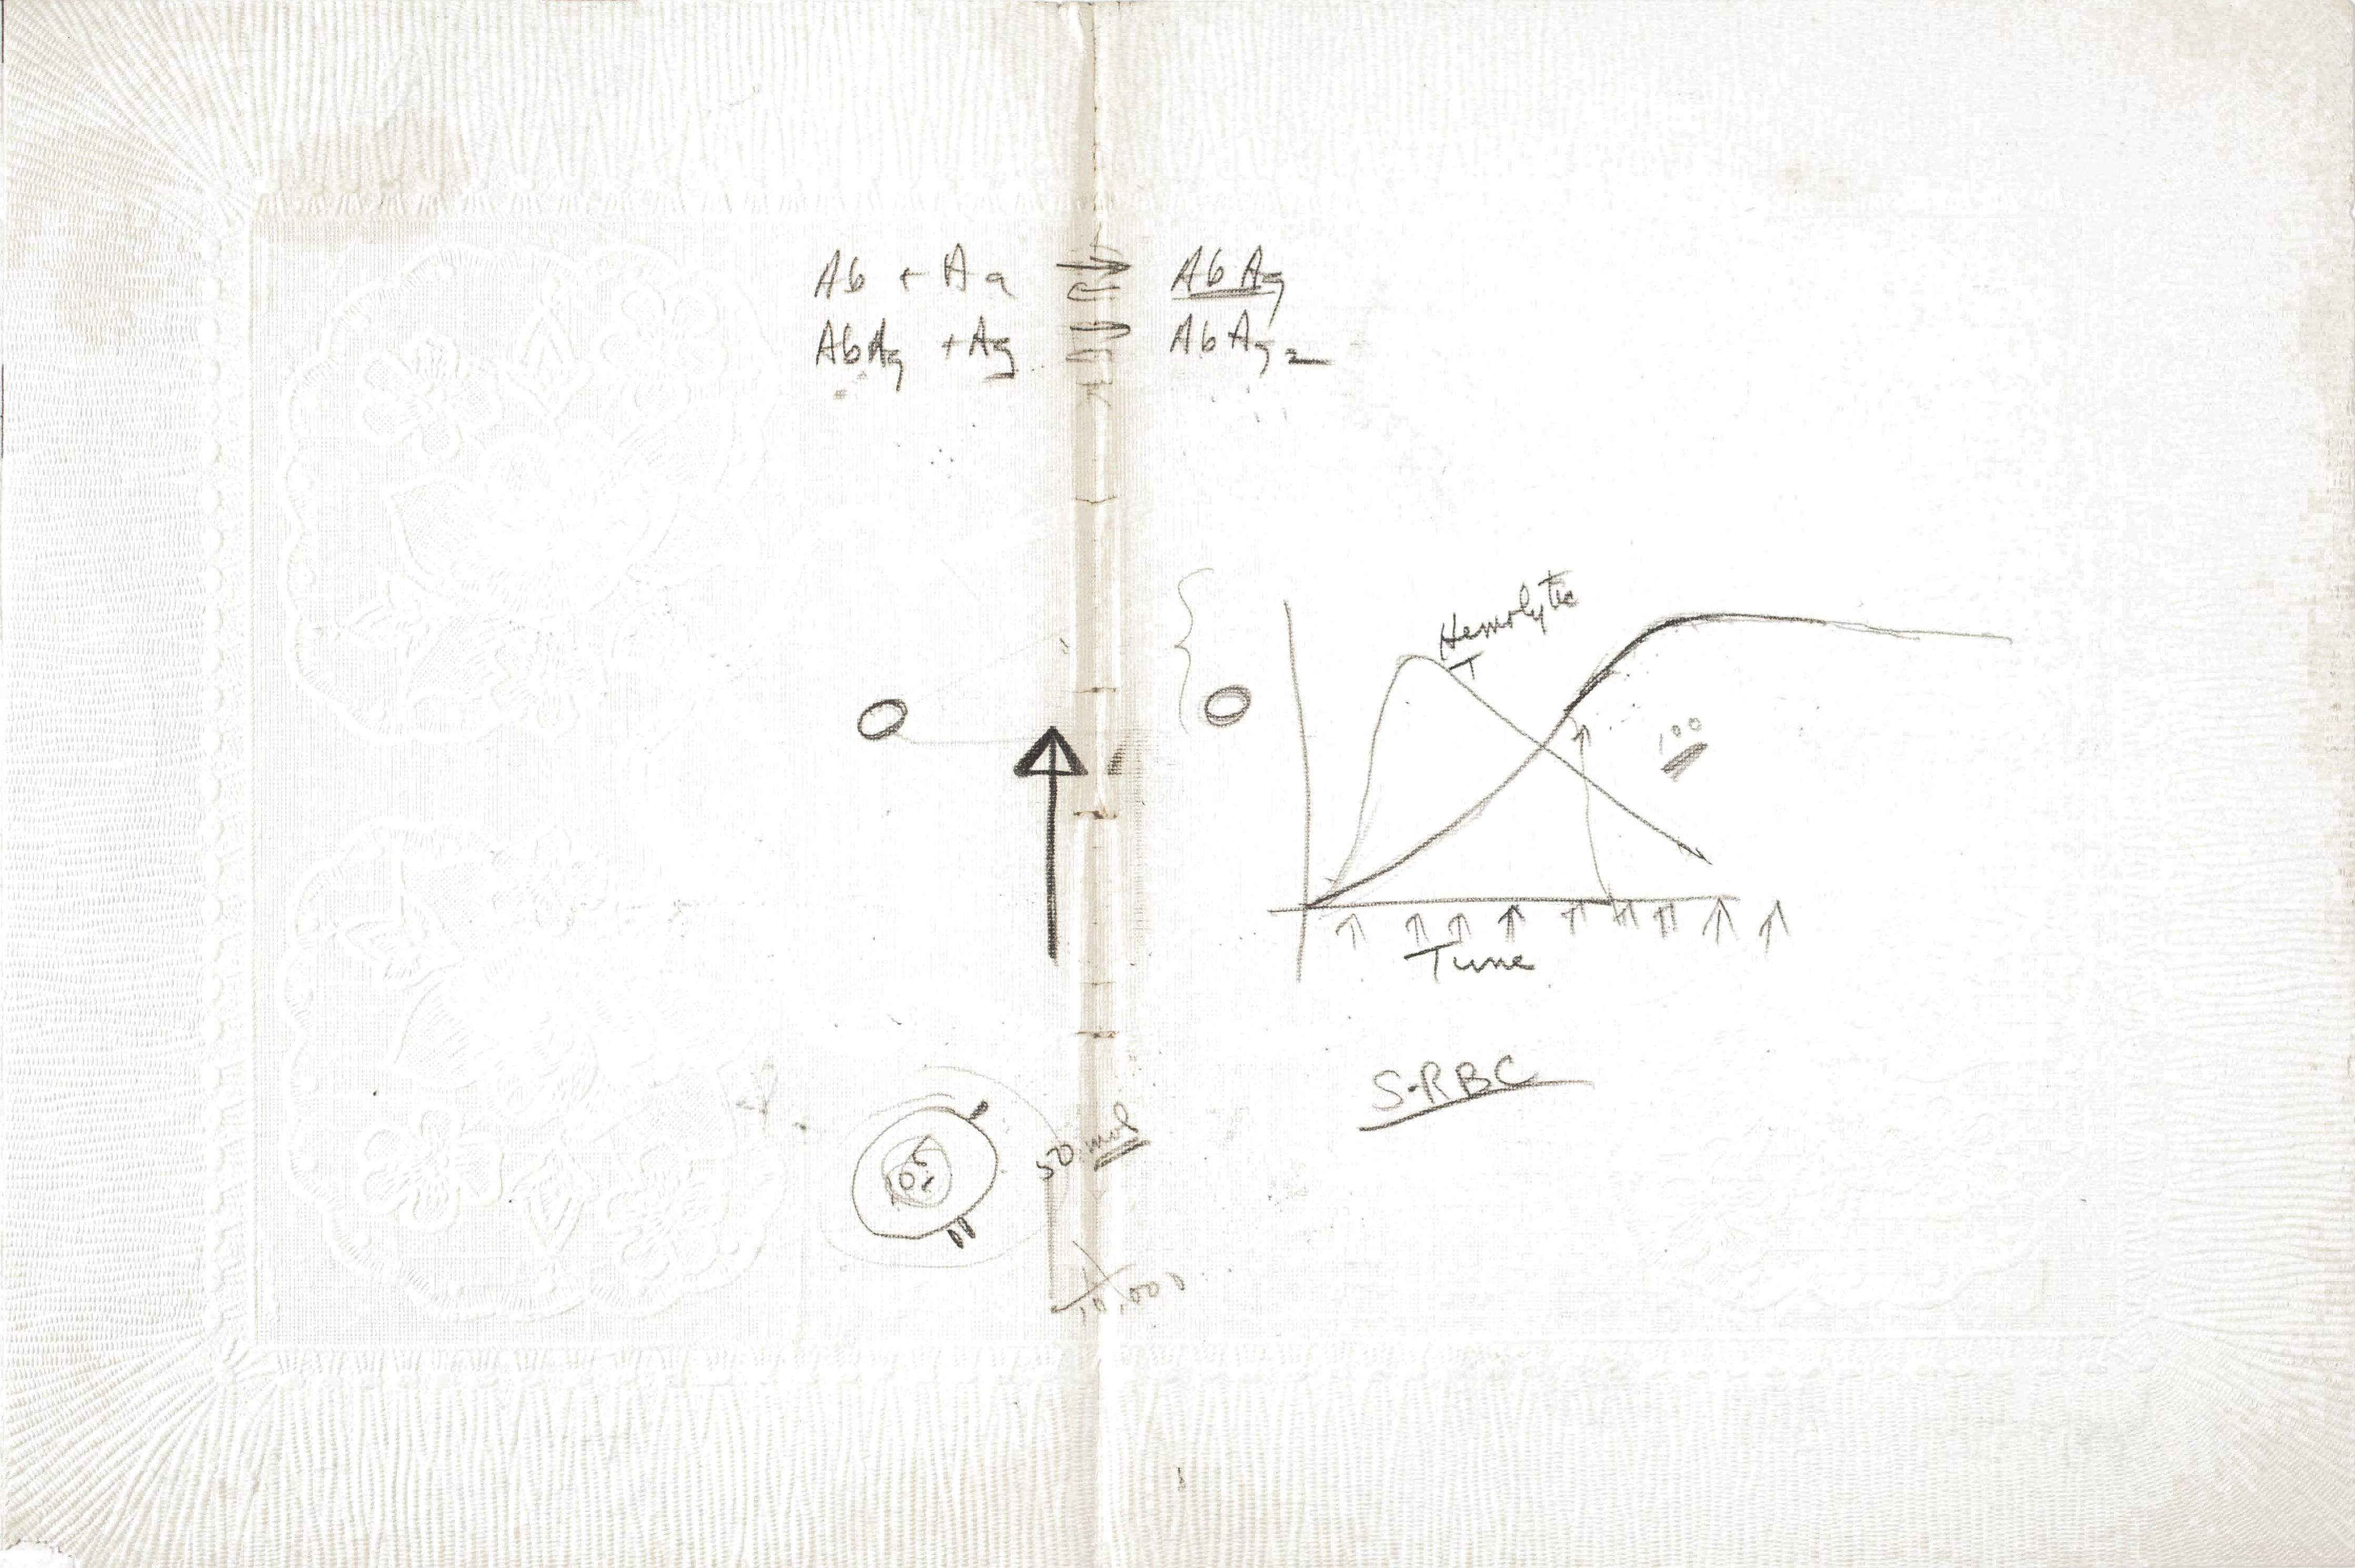 Ab + Ag ⇌ AbAg
AbAg + Ag ⇌ AbAg2
Hemolytic
100
Time
S-RBC
50 mol
10,000